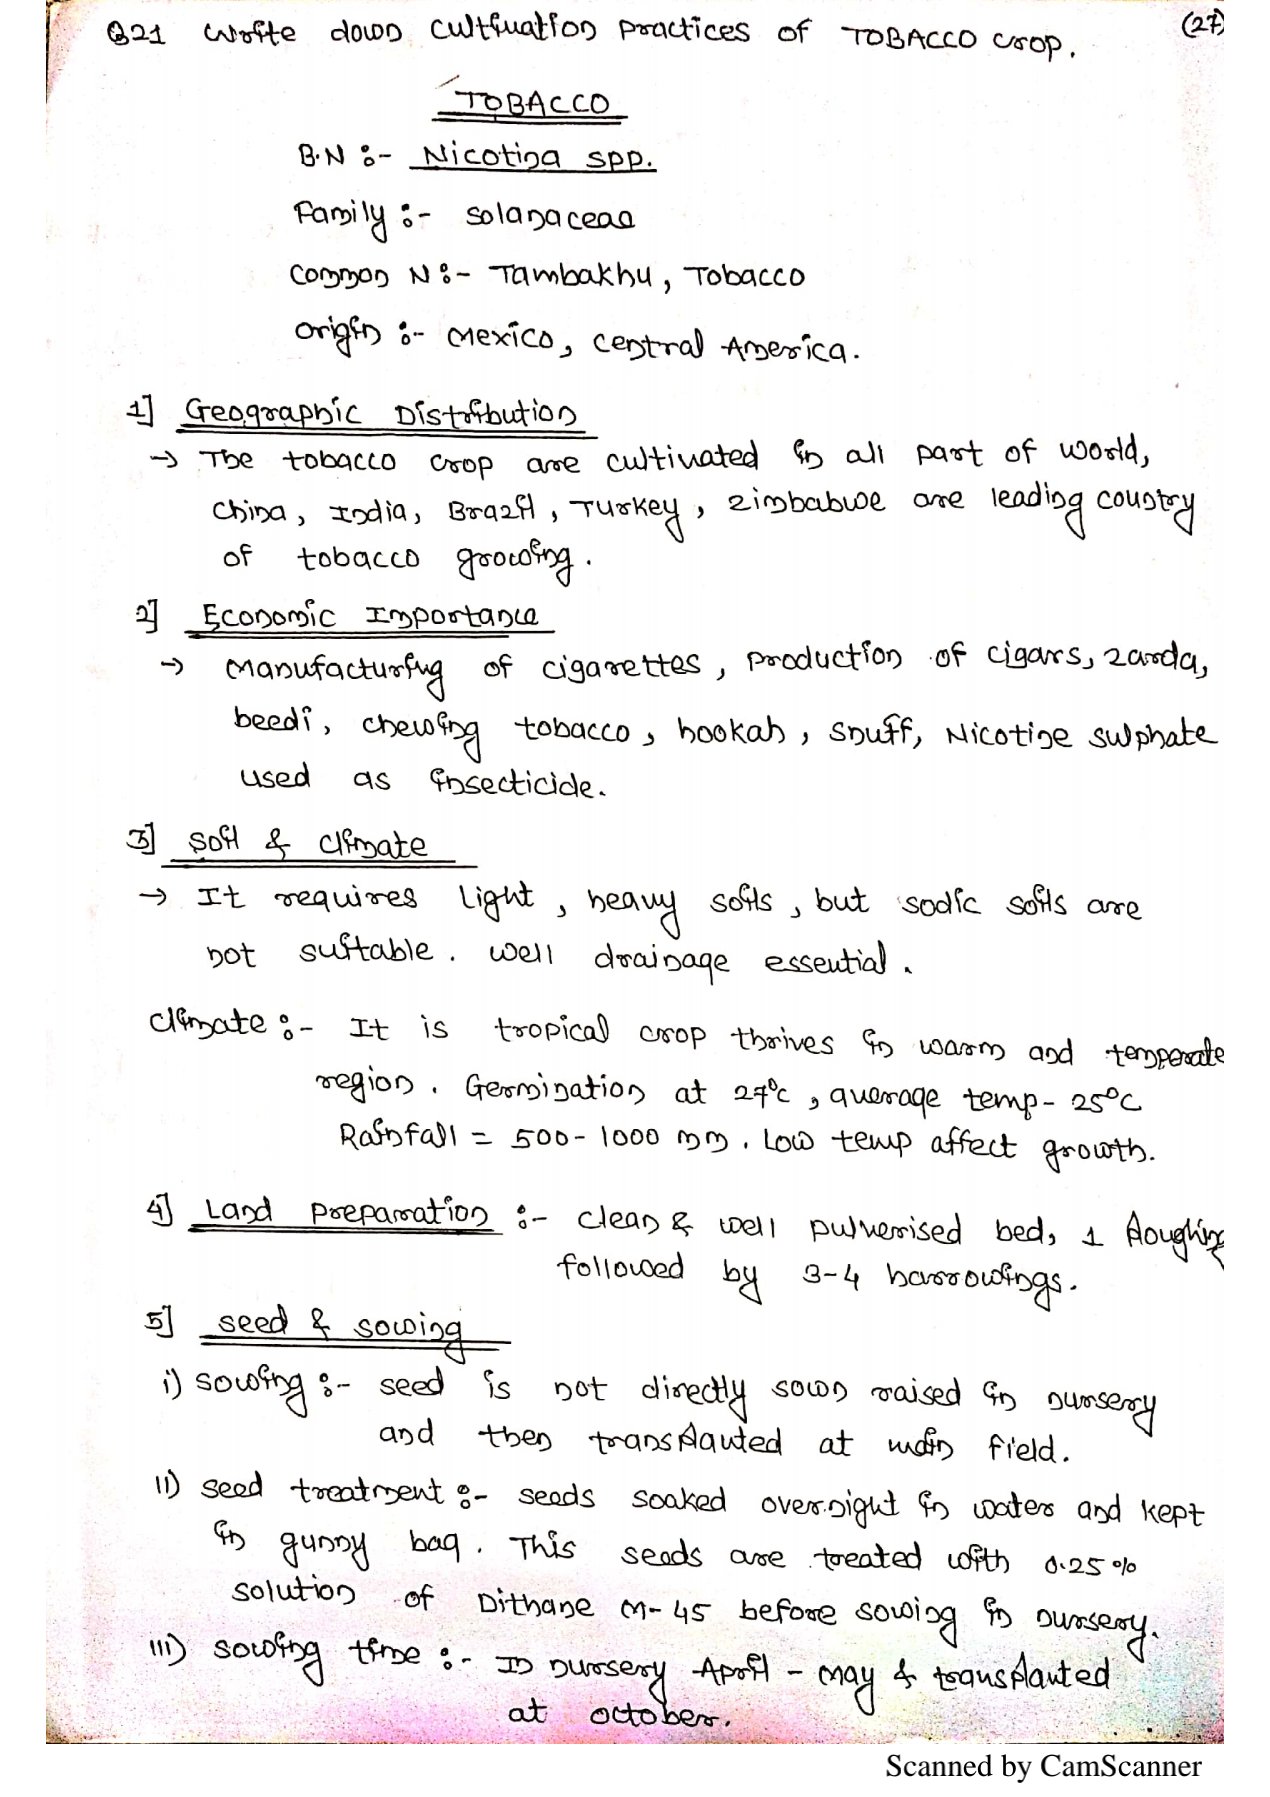 Q21 Write down cultivation practices of TOBACCO crop. (27)
TOBACCO
B.N :- Nicotina spp.
Family :- solanaceae
Common N :- Tambakhu, Tobacco
Origin :- Mexico, Central America.
1] Geographic Distribution
→ The tobacco crop are cultivated in all part of world,
China, India, Brazil, Turkey, Zimbabwe are leading country
of tobacco growing.
2] Economic Importance
→ Manufacturing of cigarettes, production of cigars, zarda,
beedi, chewing tobacco, hookah, snuff, Nicotine sulphate
used as insecticide.
3] Soil & climate
→ It requires light, heavy soils, but sodic soils are
not suitable. Well drainage essential.
Climate :- It is tropical crop thrives in warm and temperate
region. Germination at 27°C, average temp - 25°C
Rainfall = 500-1000 mm. Low temp affect growth.
4] Land preparation :- Clean & well pulverised bed, 1 Ploughing
followed by 3-4 harrowings.
5] seed & sowing
i) sowing :- seed is not directly sown raised in nursery
and then transplanted at main field.
II) seed treatment :- seeds soaked overnight in water and kept
in gunny bag. This seeds are treated with 0.25%
solution of Dithane M-45 before sowing in nursery.
III) sowing time :- In nursery April - May & transplanted
at october.
Scanned by CamScanner